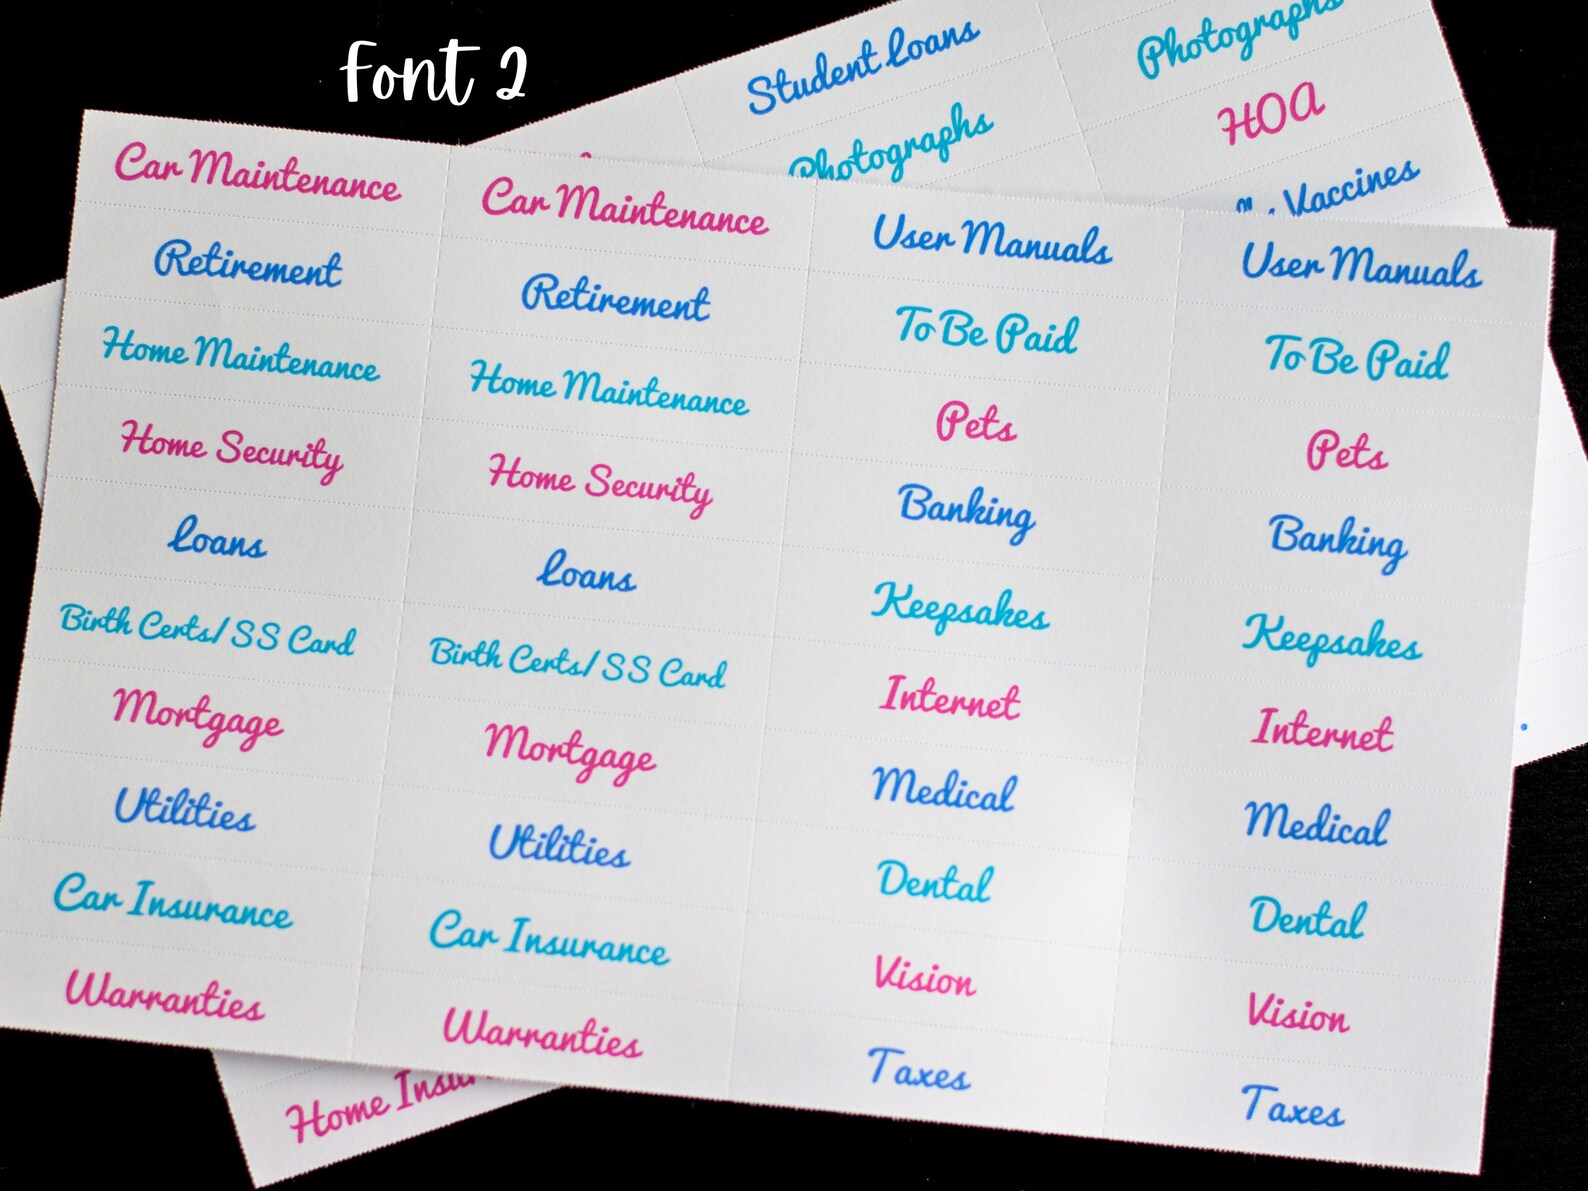 Font 2
Student Loans
Photographs
Photographs
HOA
Vaccines
Car Maintenance
Car Maintenance
User Manuals
User Manuals
Retirement
Retirement
To Be Paid
To Be Paid
Home Maintenance
Home Maintenance
Pets
Pets
Home Security
Home Security
Banking
Banking
Loans
Loans
Keepsakes
Keepsakes
Birth Certs/ SS Card
Birth Certs/ SS Card
Internet
Internet
Mortgage
Mortgage
Medical
Medical
Utilities
Utilities
Dental
Dental
Car Insurance
Car Insurance
Vision
Vision
Warranties
Warranties
Taxes
Taxes
Home